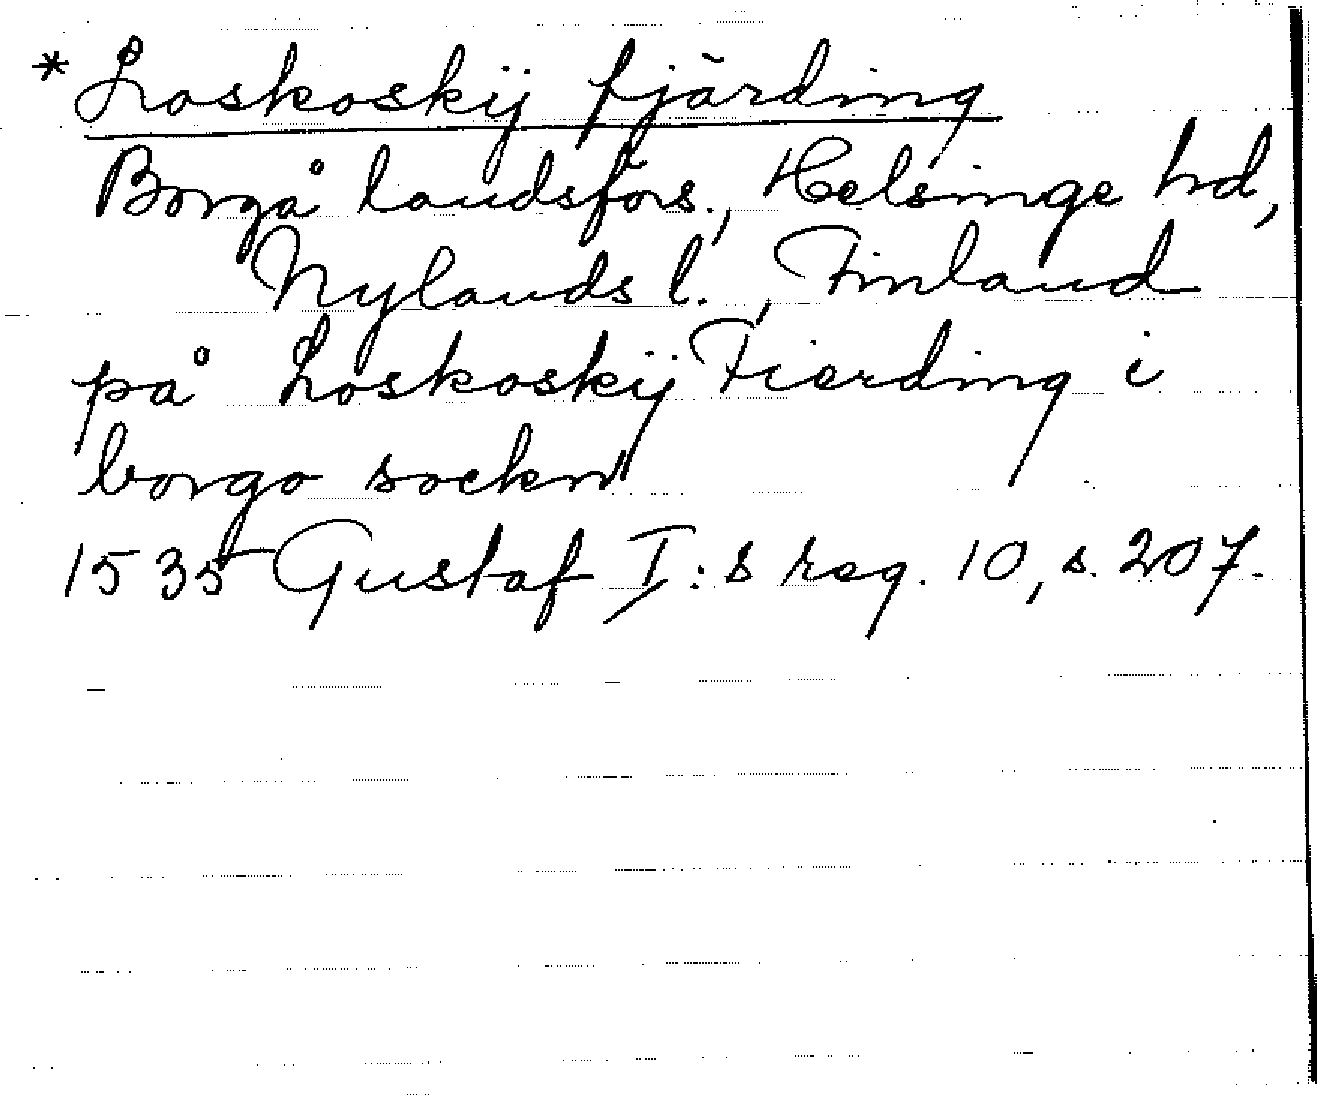 * Loskoskij fjärding
Borgå landsförs., Helsinge hd,
Nylands l., Finland
på Loskoskij Fierding i
borgo sockn
1535 Gustaf I:s reg. 10, s. 207.